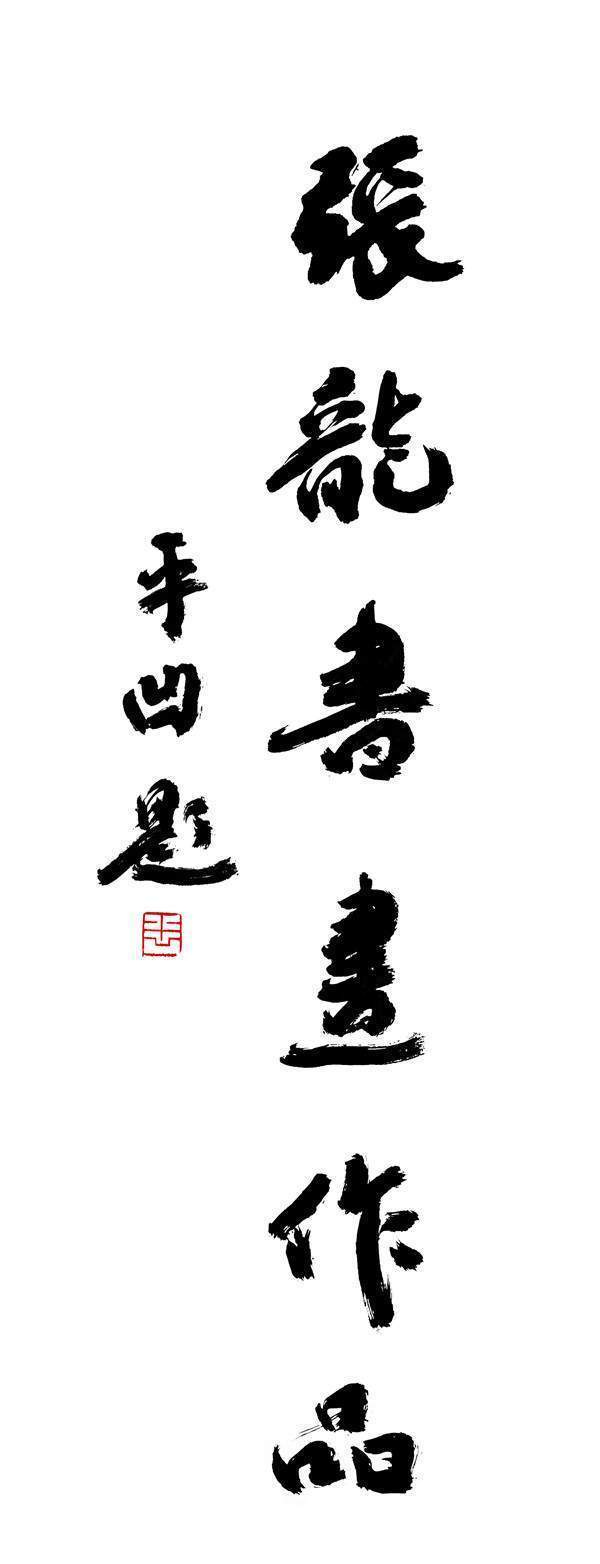 張龍書畫作品
平凹題